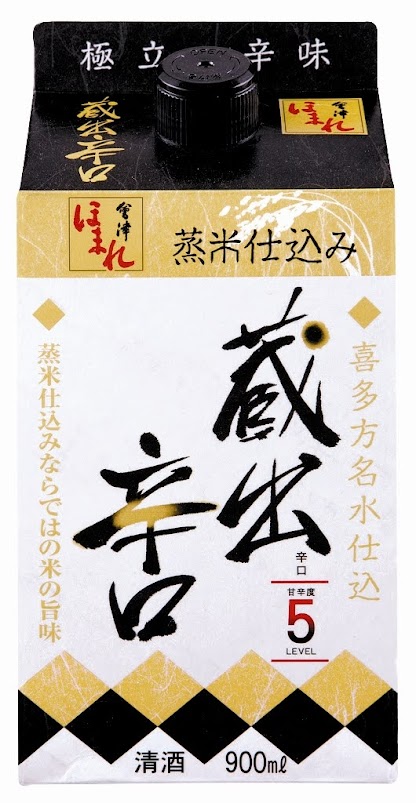 極立つ辛味
蔵出辛口
會津
ほまれ
會津
ほまれ
蒸米仕込み
喜多方名水仕込
蔵出
辛口
蒸米仕込みならではの米の旨味
辛口
甘辛度
5
LEVEL
清酒 900mℓ